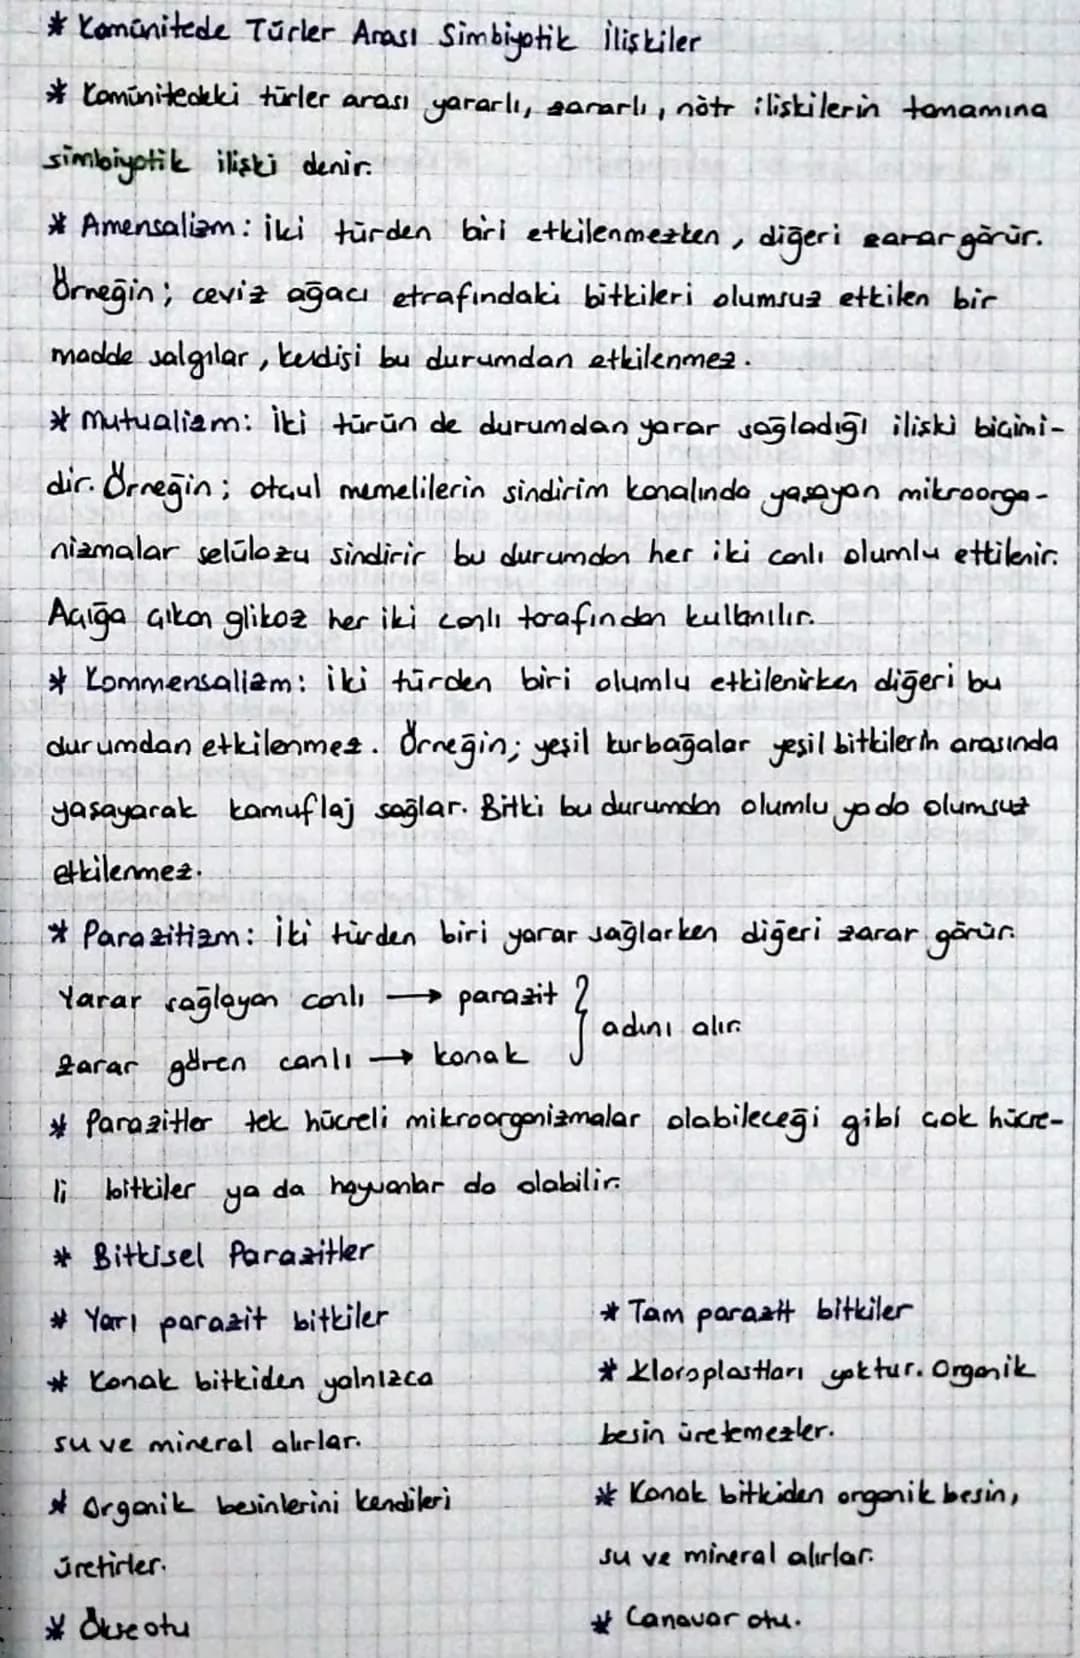 * Komünitede Türler Arası Simbiyotik İlişkiler
* Komünitedeki türler arası yararlı, zararlı, nötr ilişkilerin tamamına
simbiyotik ilişki denir.
* Amensalizm: İki türden biri etkilenmezken, diğeri zarar görür.
Örneğin; ceviz ağacı etrafındaki bitkileri olumsuz etkilen bir
madde salgılar, kendisi bu durumdan etkilenmez.
* Mutualizm: İki türün de durumdan yarar sağladığı ilişki biçimi-
dir. Örneğin; otçul memelilerin sindirim kanalında yaşayan mikroorga-
nizmalar selülozu sindirir bu durumdan her iki canlı olumlu etkilenir.
Açığa çıkan glikoz her iki canlı tarafından kullanılır.
* Kommensalizm: İki türden biri olumlu etkilenirken diğeri bu
durumdan etkilenmez. Örneğin; yeşil kurbağalar yeşil bitkilerin arasında
yaşayarak kamuflaj sağlar. Bitki bu durumdan olumlu ya da olumsuz
etkilenmez.
* Parazitizm: İki türden biri yarar sağlarken diğeri zarar görür.
Yarar sağlayan canlı → parazit } adını alır.
Zarar gören canlı → konak
* Parazitler tek hücreli mikroorganizmalar olabileceği gibi çok hücre-
li bitkiler ya da hayvanlar da olabilir.
* Bitkisel Parazitler
* Yarı parazit bitkiler
* Konak bitkiden yalnızca
su ve mineral alırlar.
* Organik besinlerini kendileri
üretirler.
* Ökse otu
* Tam parazit bitkiler
* Kloroplastları yoktur. Organik
besin üretemezler.
* Konak bitkiden organik besin,
su ve mineral alırlar.
* Canavar otu.